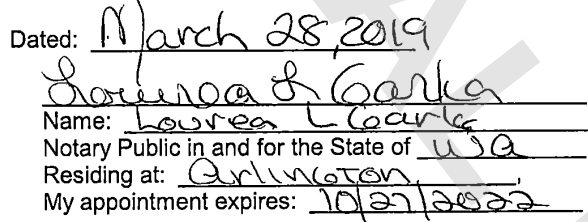 Dated: March 28, 2019
Lourea L Garka
Name: Lourea L Garka
Notary Public in and for the State of WA
Residing at: Arlington,
My appointment expires: 10/27/2022